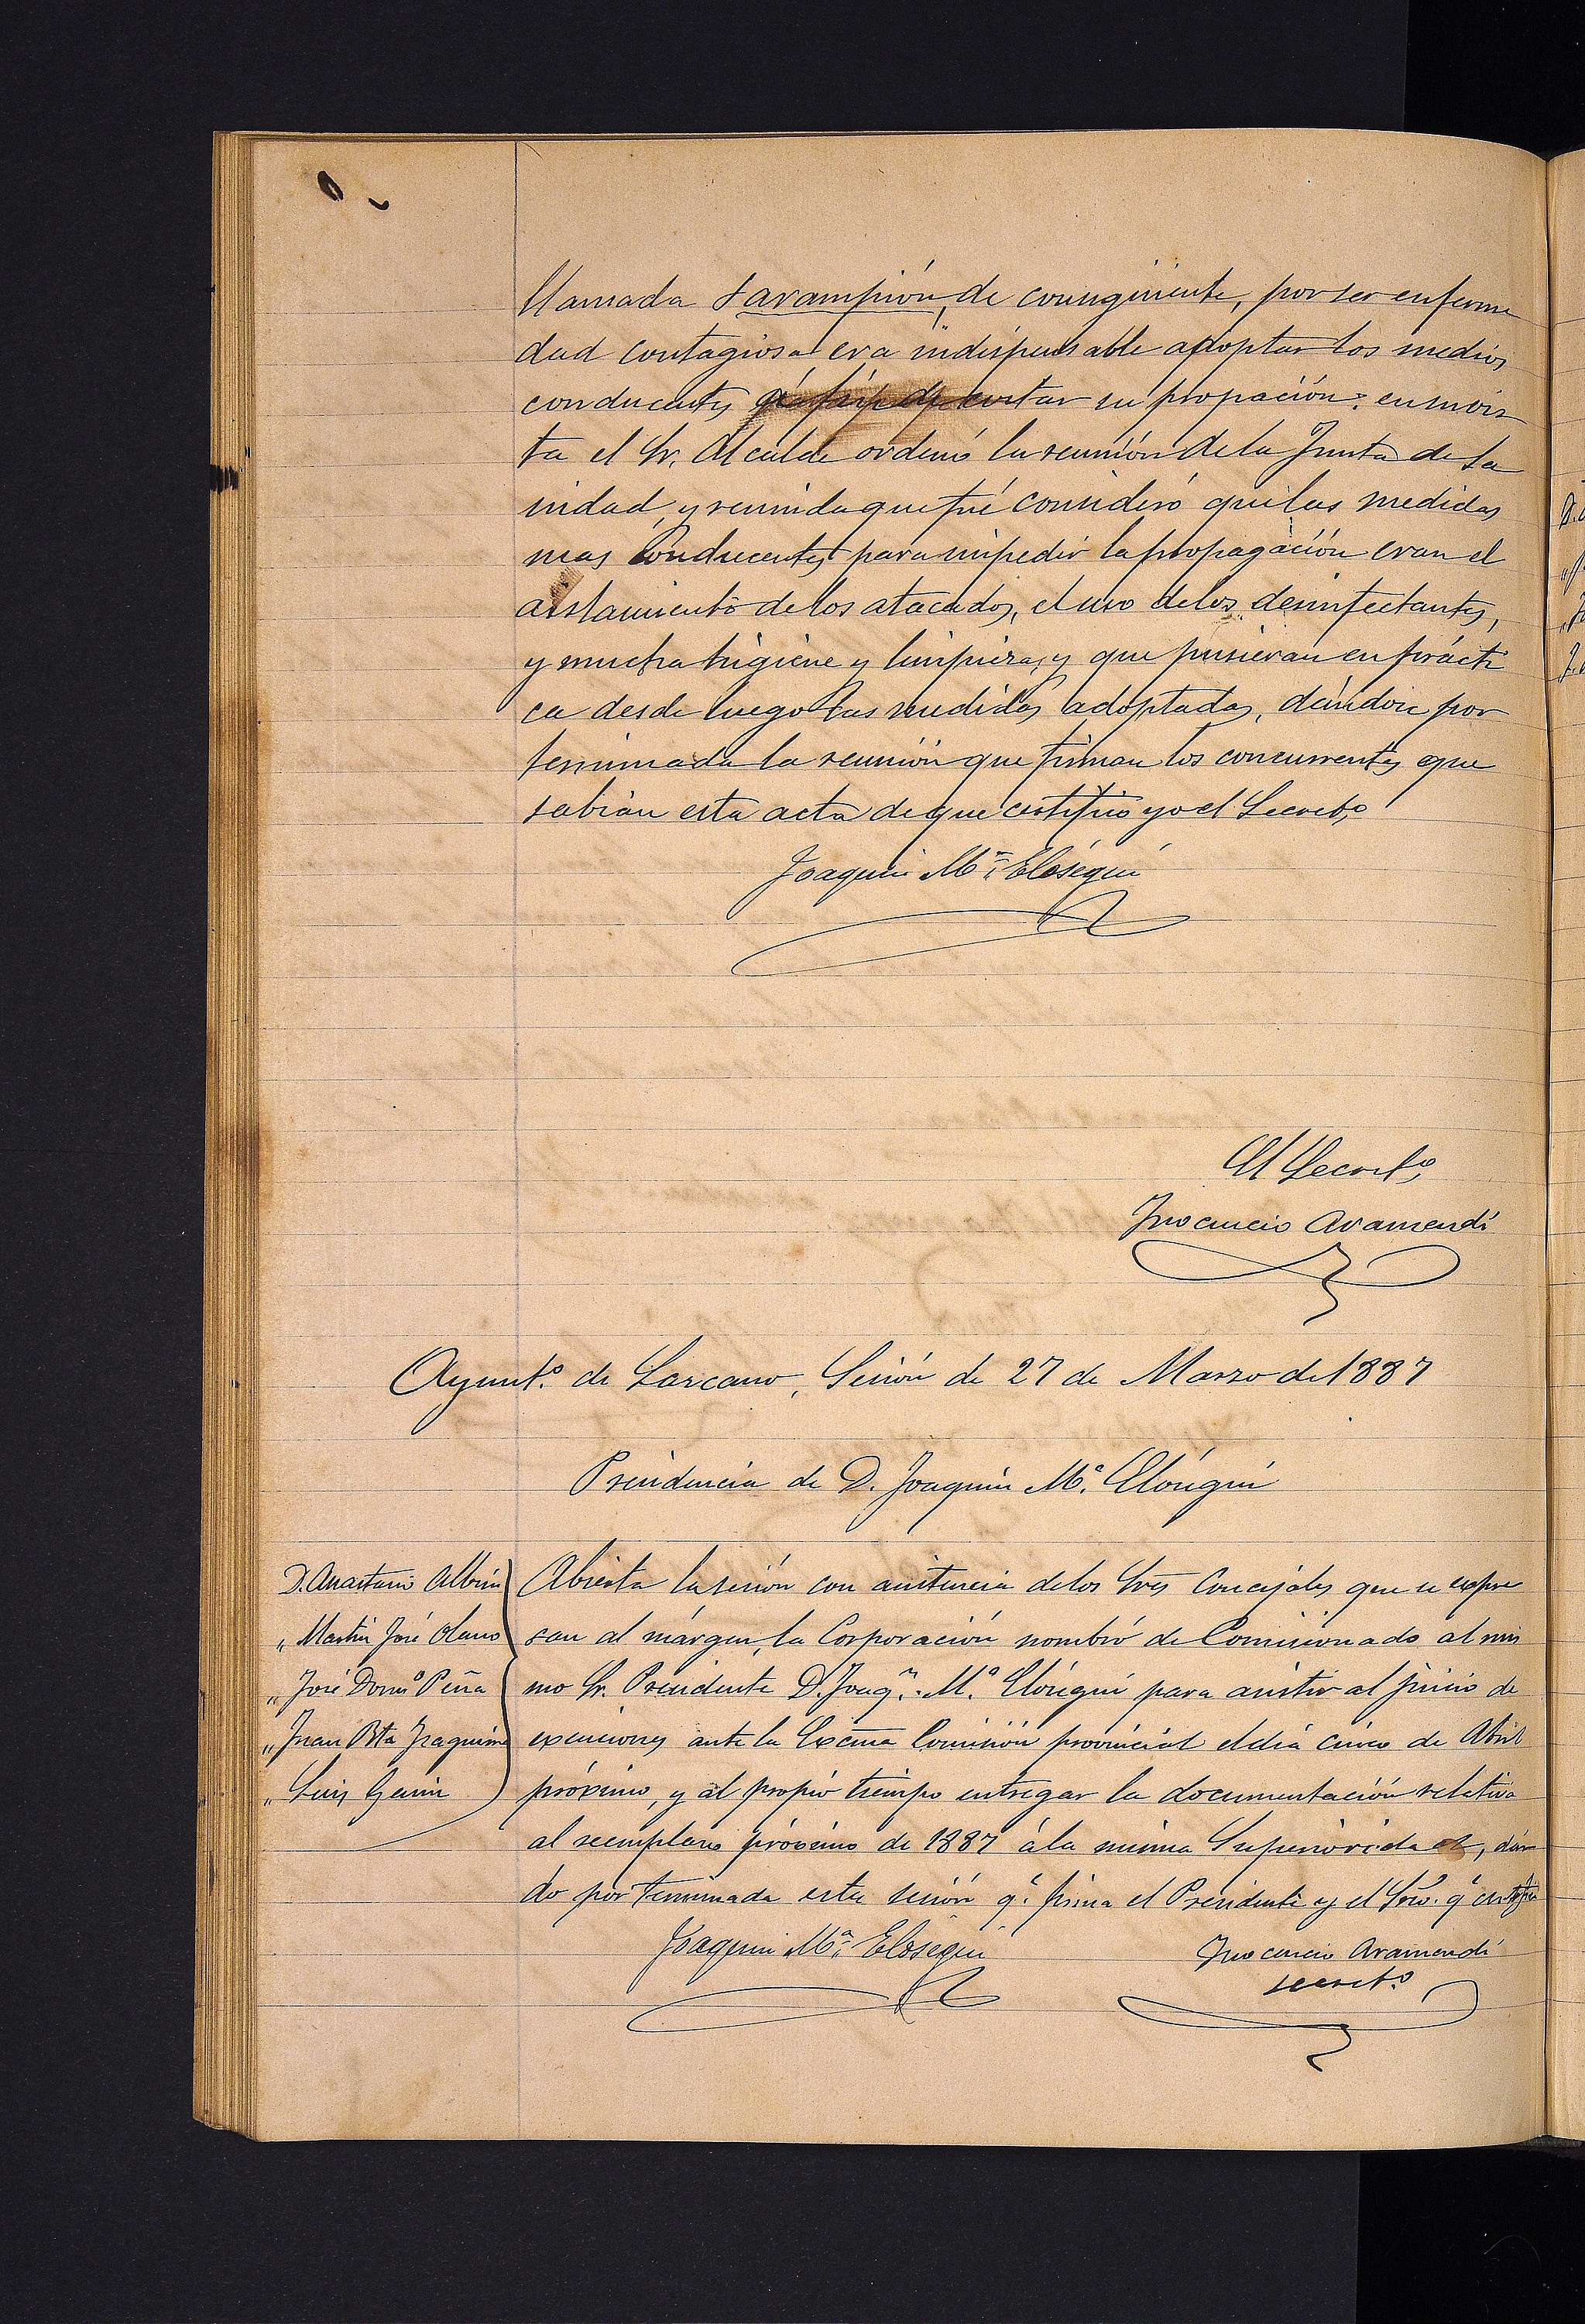 llamada sarampión, de consiguiente, por ser enferme
dad contagiosa era indispensable adoptar los medios
conducentes á fin de cortar su propación: en su vis
ta el Sr. Alcalde ordenó la reunión de la Junta de Sa
nidad, y reunida que fué consideró que las medidas
mas conducentes para impedir la propagación eran el
aislamiento de los atacados, el uso de los desinfectantes,
y mucha higiene y limpieza, y que pusieran en prácti
ca desde luego las medidas adoptadas, dándose por
terminada la reunión que firman los concurrentes que
sabian esta acta de que certifico yo el Secret.o
Joaquin M.a Elósegui
El Secret.o
Inocencio Aramendi
Ayunt.o de Lazcano, Sesión de 27 de Marzo de 1887
Presidencia de D. Joaquin M.a Elósegui
D. Anastasio Albisu
" Martin José Olano
" José Dom.o Peña
" Juan Bta
" Luis
Abierta la sesión con asistencia de los Sres Concejales que se expre
san al márgen, la Corporación nombró de Comisionado al mis
mo Sr. Presidente D. Joaq.n M.a Elósegui para asistir al juicio de
exenciones ante la Excma Comisión provincial el dia cinco de Abril
próximo, y al propio tiempo entregar la documentación relativa
al reemplazo próximo de 1887 á la misma Superioridad, dán
do por terminada esta sesión q.e firma el Presidente y el Srio. q.e certifica
Joaquin M.a Elosegui
Inocencio Aramendi
secret.o